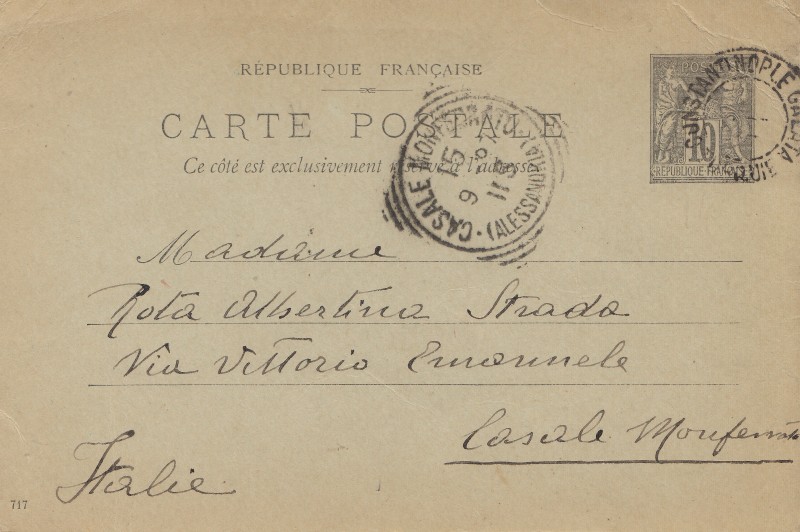 RÉPUBLIQUE FRANÇAISE
CARTE POSTALE
Ce côté est exclusivement réservé à l'adresse
POSTES
10
RÉPUBLIQUE FRANÇAISE
CONSTANTINOPLE GALATA
CASALE MONFERRATO
(ALESSANDRIA)
Madame
Rota Albertina Strada
Via Vittorio Emanuele
Casale Monferrato
Italie
717